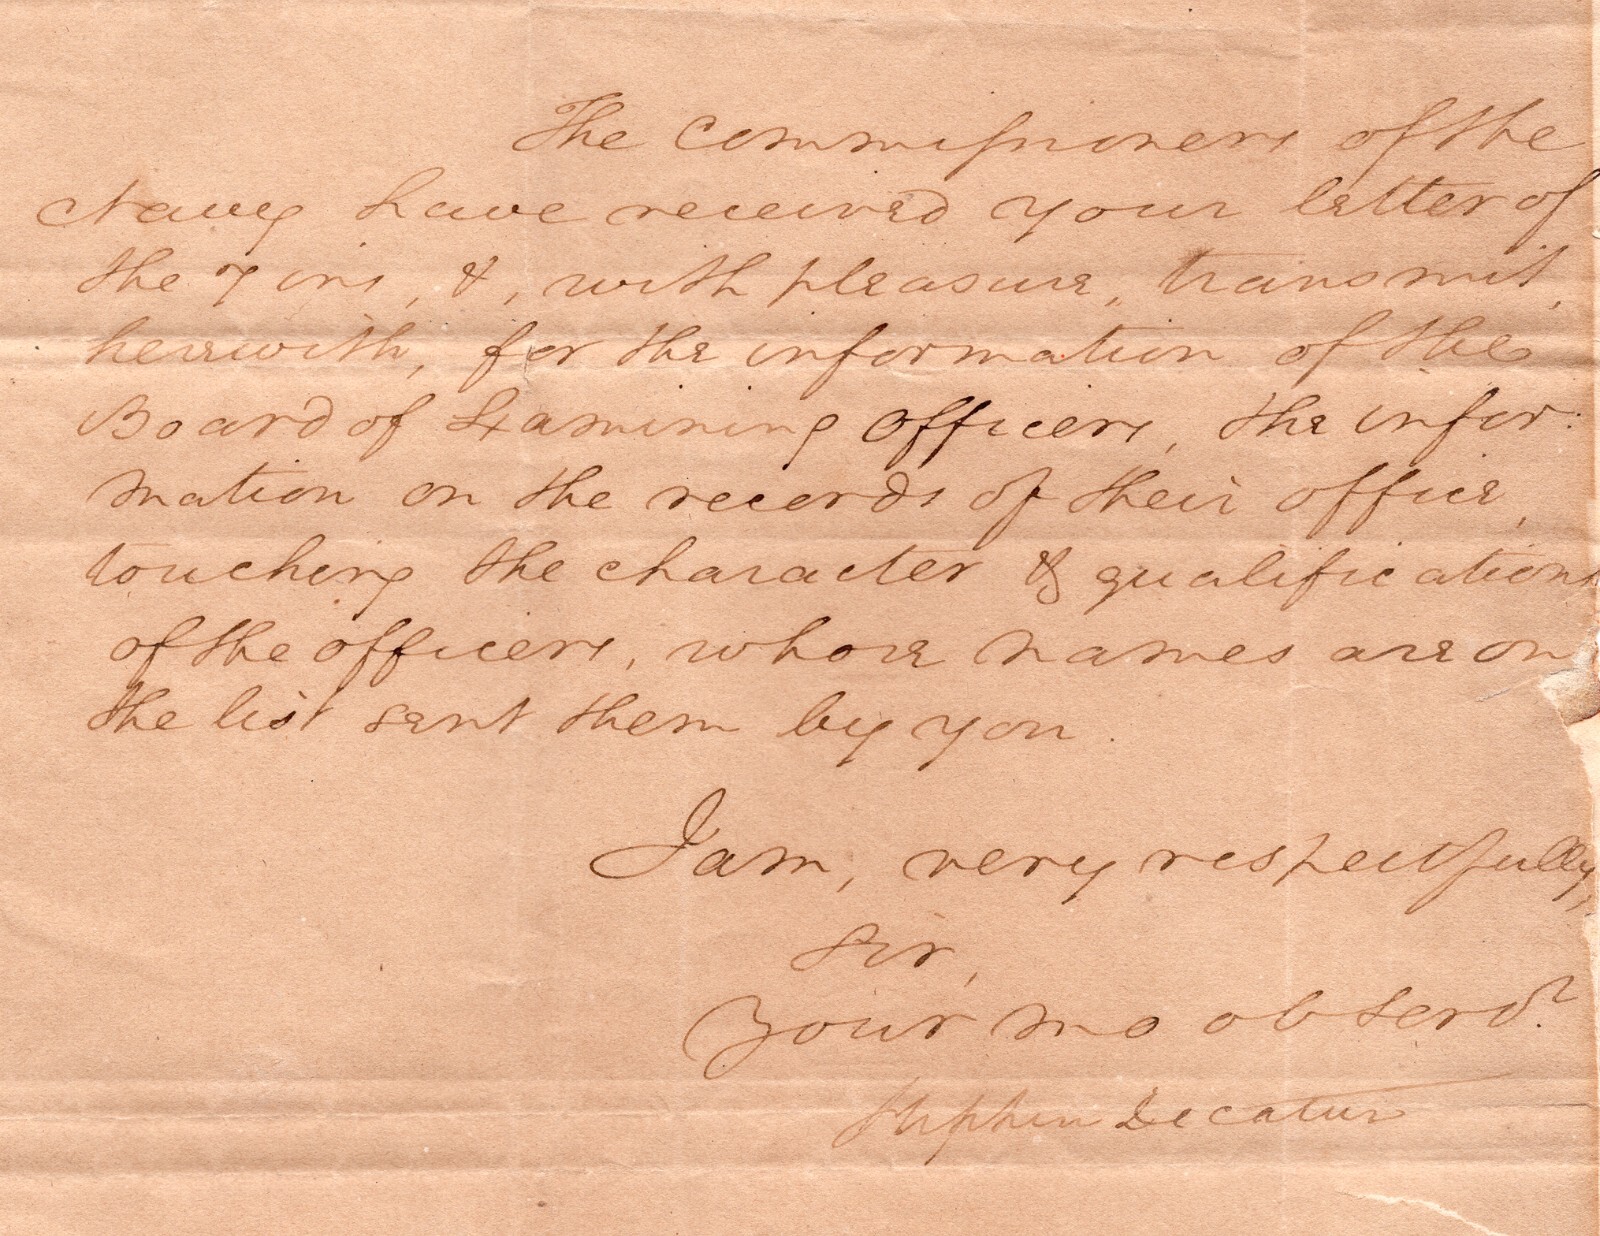 The Commissioners of the
Navy have received your letter of
the 7 ins, &, with pleasure, transmit,
herewith, for the information of the
Board of Examining officers, the infor:
mation on the records of their office,
touching the character & qualifications
of the officers, whose names are on
the list sent them by you.
I am, very respectfully,
Sir,
Your mo ob serv.
Stephen Decatur